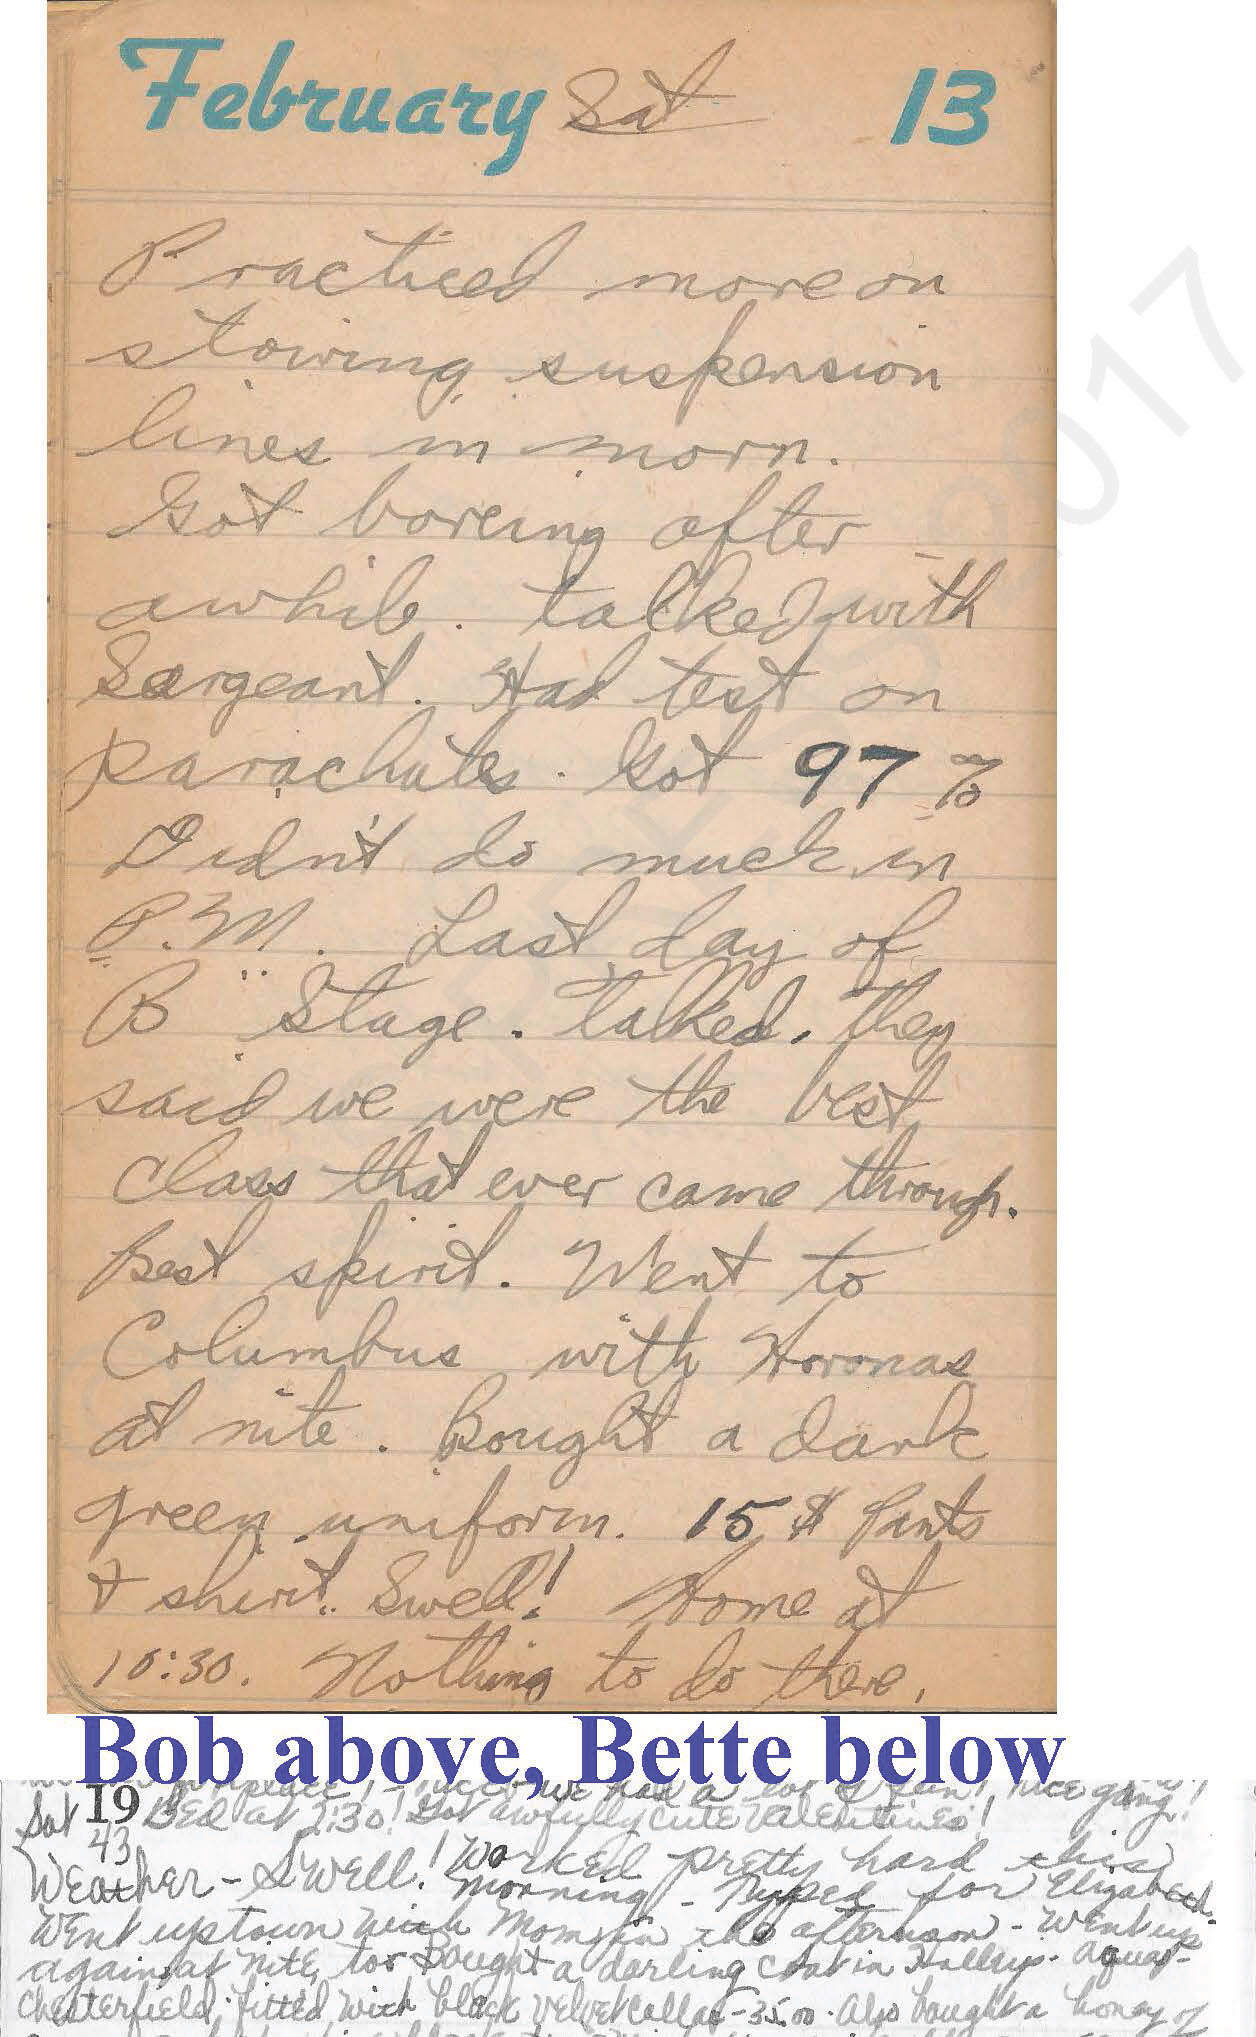 February Sat 13
Practiced more on
stowing suspension
lines in morn.
Got boreing after
awhile. talked with
Sargeant. Had test on
parachutes. Got 97%
Didn't do much in
P.M. Last day of
"B" Stage. talked. they
said we were the best
class that ever came through.
Best spirit. Went to
Columbus with Horonas
at nite. Bought a dark
green uniform. 15$ Pants
& shirt. Swell! Home at
10:30. Nothing to do there.
Bob above, Bette below
we had a lot of fun! Nice gang!
Sat 19 Bed at 2:30! Got awfully cute Valentines!
43
Weather - Swell! Worked pretty hard this
morning - Typed for Elizabeth.
Went uptown with Mom in the afternoon - Went up
again at nite, too Bought a darling coat in Halleys - aqua -
chesterfield, fitted with black velvet collar - 35.00. Also bought a honey of
2017
PRESS